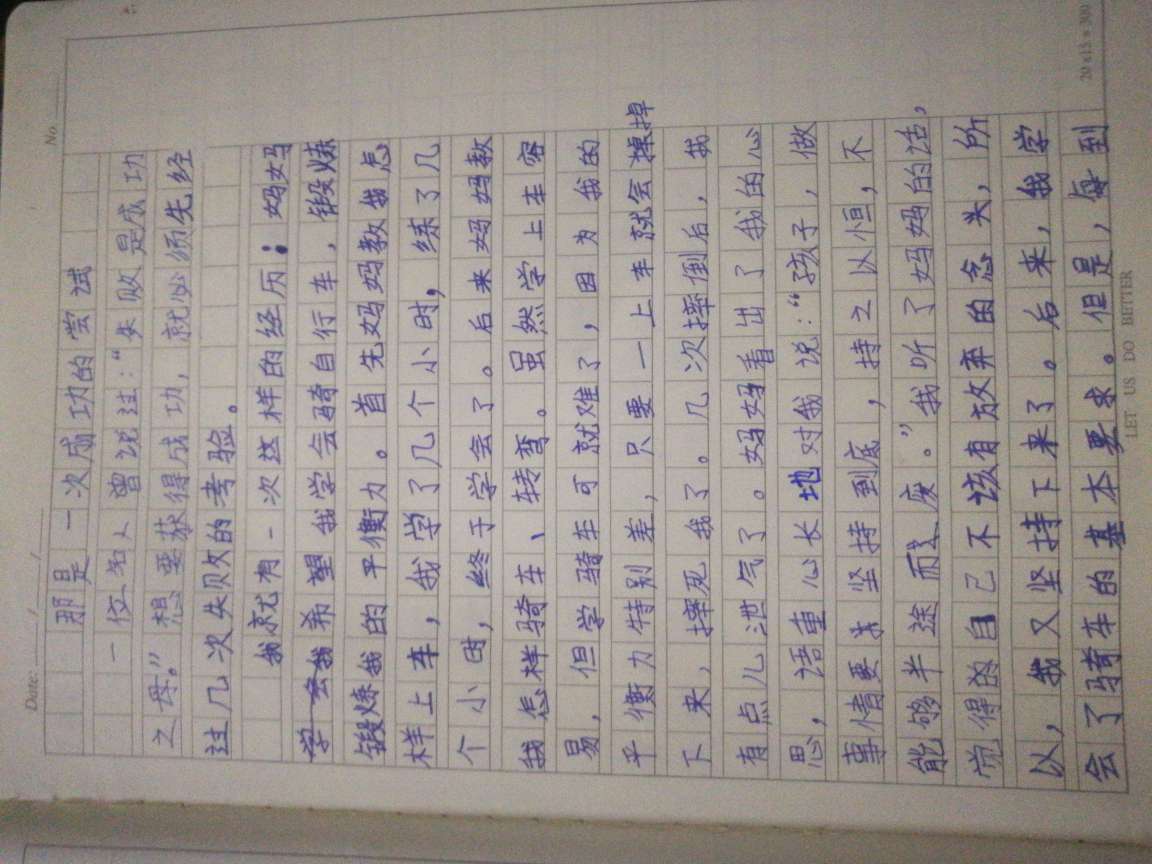 Date: / /
No.
那是一次成功的尝试
一位名人曾说过：“失败是成功
之母。”想要获得成功，就必须先经
过几次失败的考验。
我就有一次这样的经历：妈妈
希望我学会骑自行车，锻炼
锻炼我的平衡力。首先妈妈教我怎
样上车，我学了几个小时，练了几
个小时，终于学会了。后来妈妈教
我怎样骑车、转弯。虽然学上车容
易，但学骑车可就难了，因为我的
平衡力特别差，只要一上车就会掉
下来，摔死我了。几次摔倒后，我
有点儿泄气了。妈妈看出了我的心
思，语重心长地对我说：“孩子，做
事情要坚持到底，持之以恒，不
能够半途而废。”我听了妈妈的话，
觉得的自己不该有放弃的念头，所
以，我又坚持下来了。后来，我学
会了骑车的基本要求。但是，每到
20 x 15 = 300
LET US DO BETTER